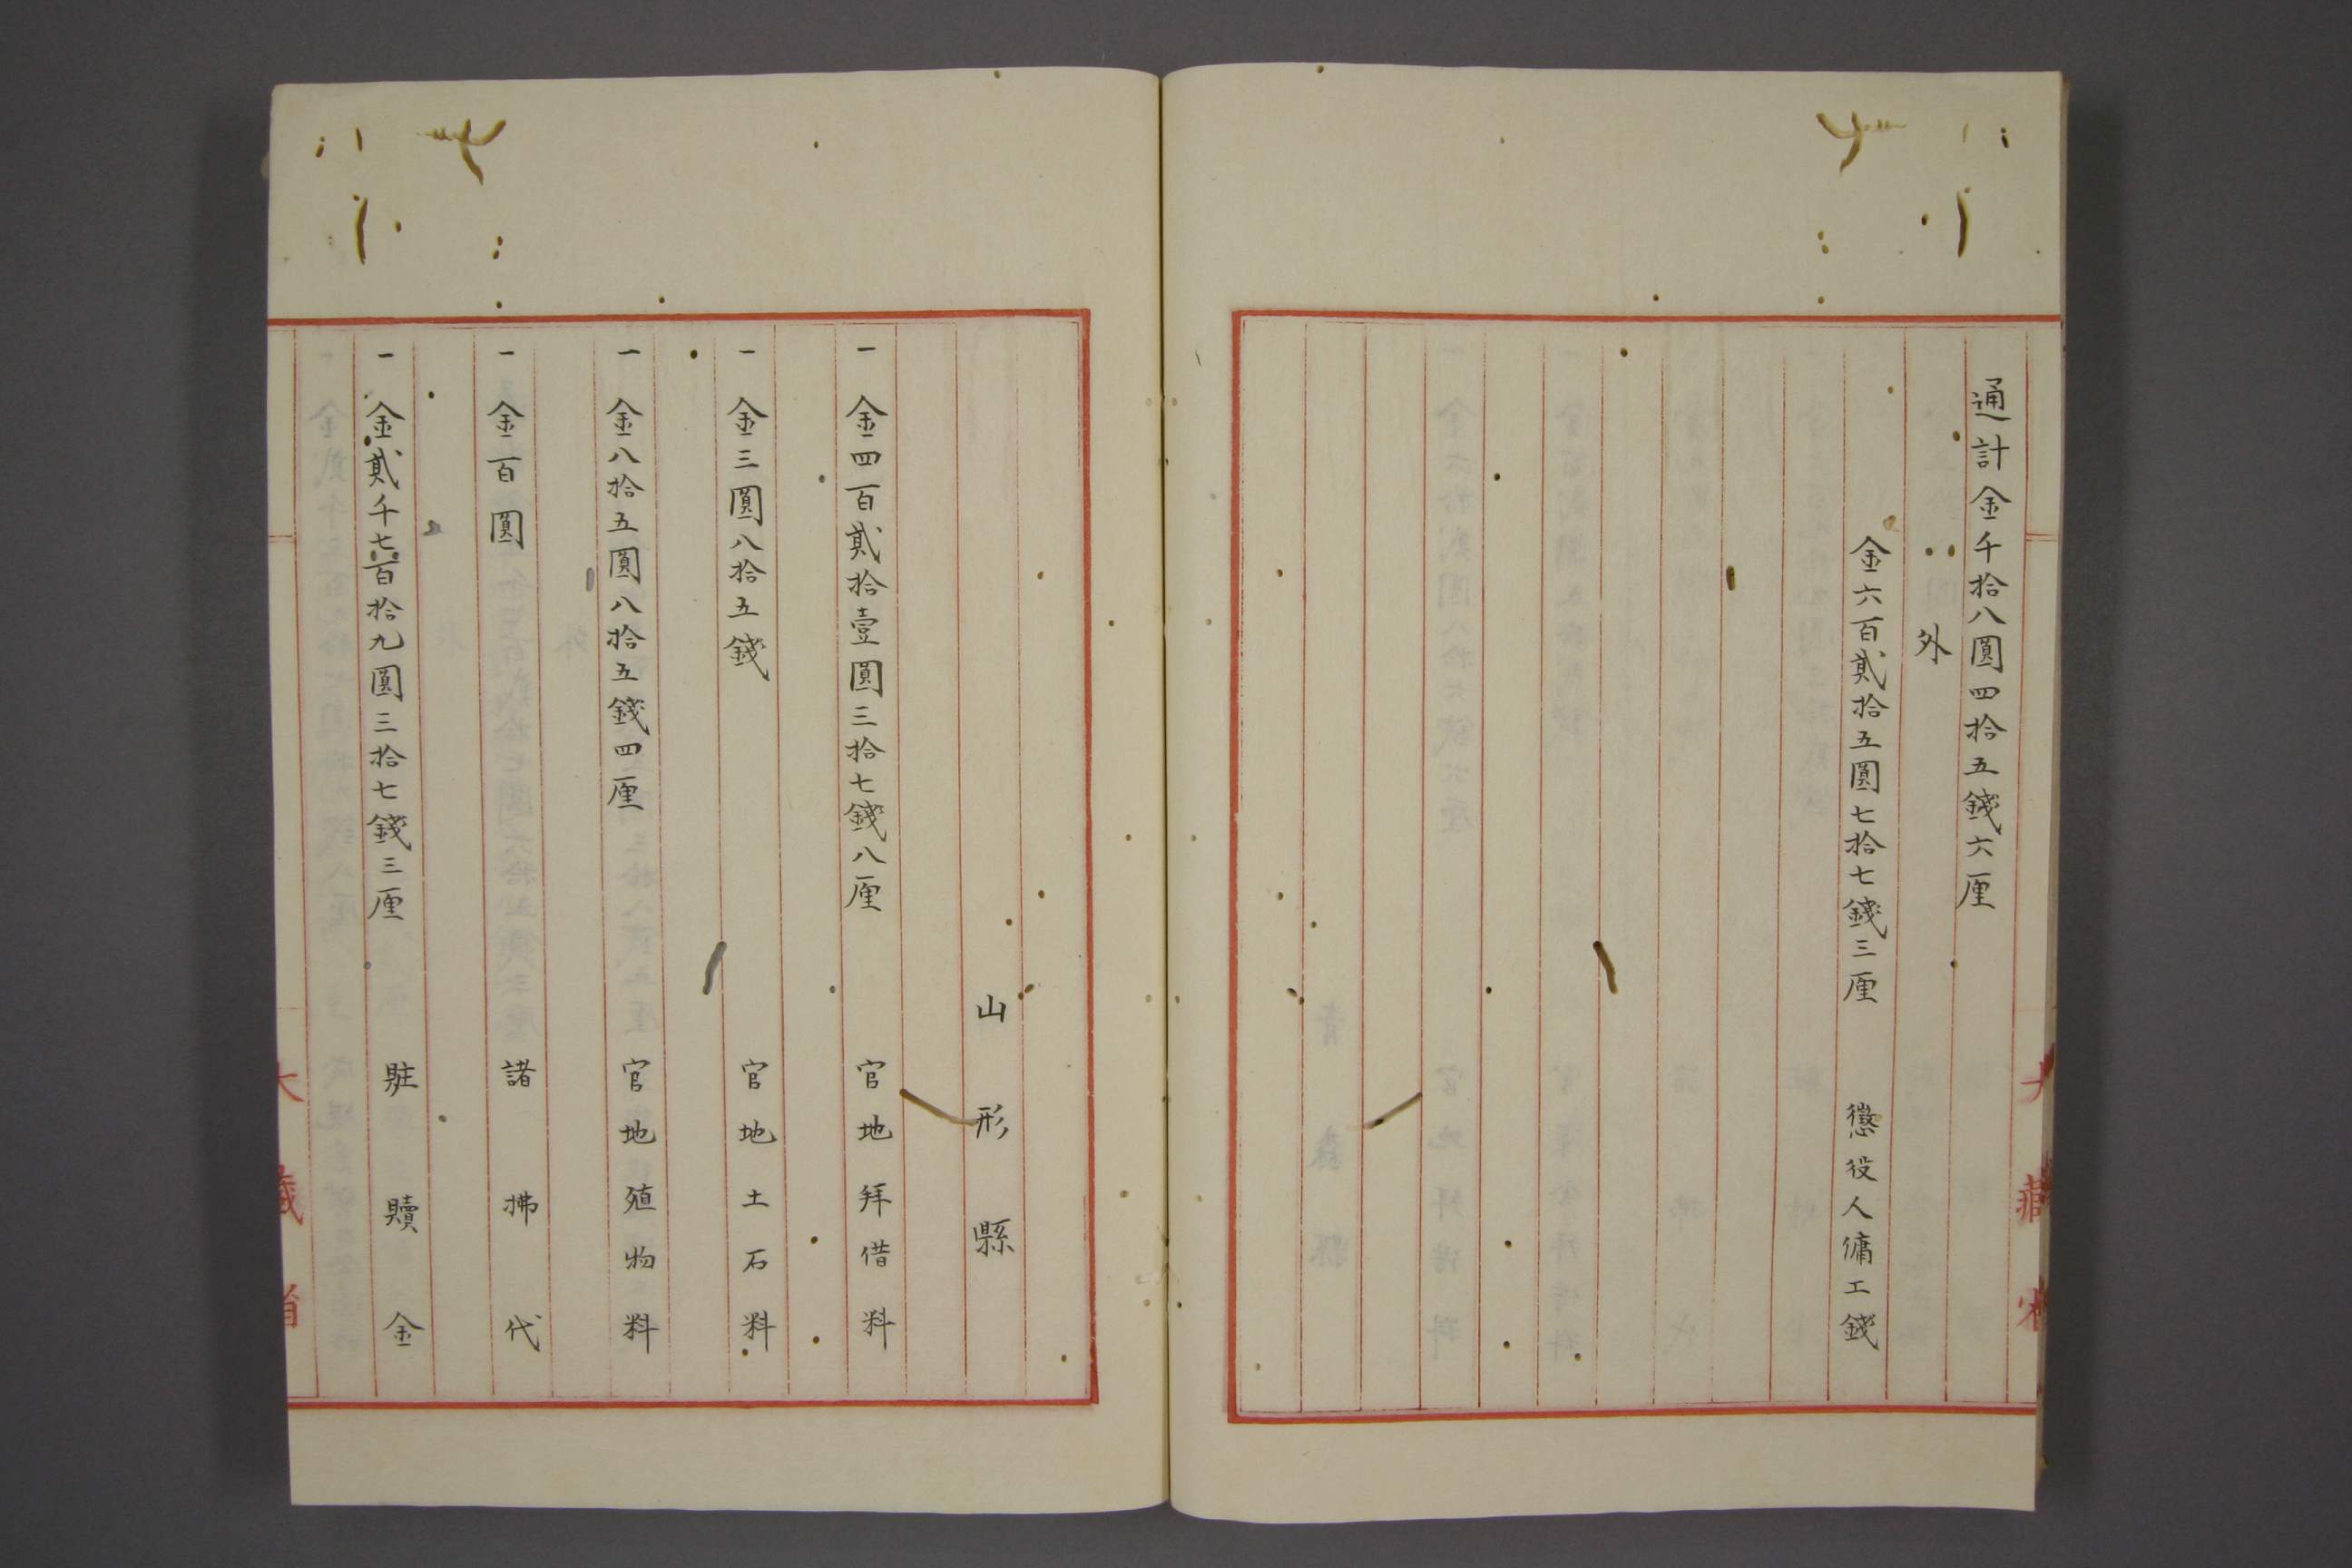 通計金千拾八圓四拾五錢六厘
外
金六百貳拾五圓七拾七錢三厘 懲役人傭工錢
山形縣
一 金四百貳拾壹圓三拾七錢八厘 官地拜借料
一 金三圓八拾五錢 官地土石料
一 金八拾五圓八拾五錢四厘 官地殖物料
一 金百圓 諸拂代
一 金貳千七百拾九圓三拾七錢三厘 贓贖金
大藏省